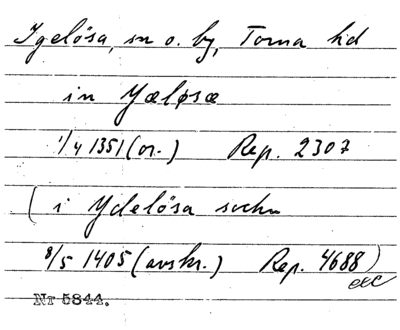 Igelösa, sn o. by, Torna hd
in Yæløsæ
1/4 1351 (or.) Rep. 2307
( i Ydelösa sockn
8/5 1405 (avskr.) Rep. 4688)
eec
Nr 5844.